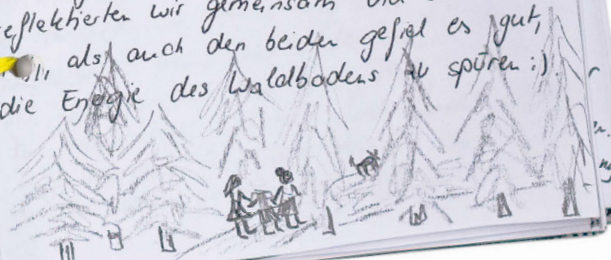 reflektierten wir gemeinsam
als auch den beiden gefiel es gut,
die Energie des Waldbodens zu spüren :)